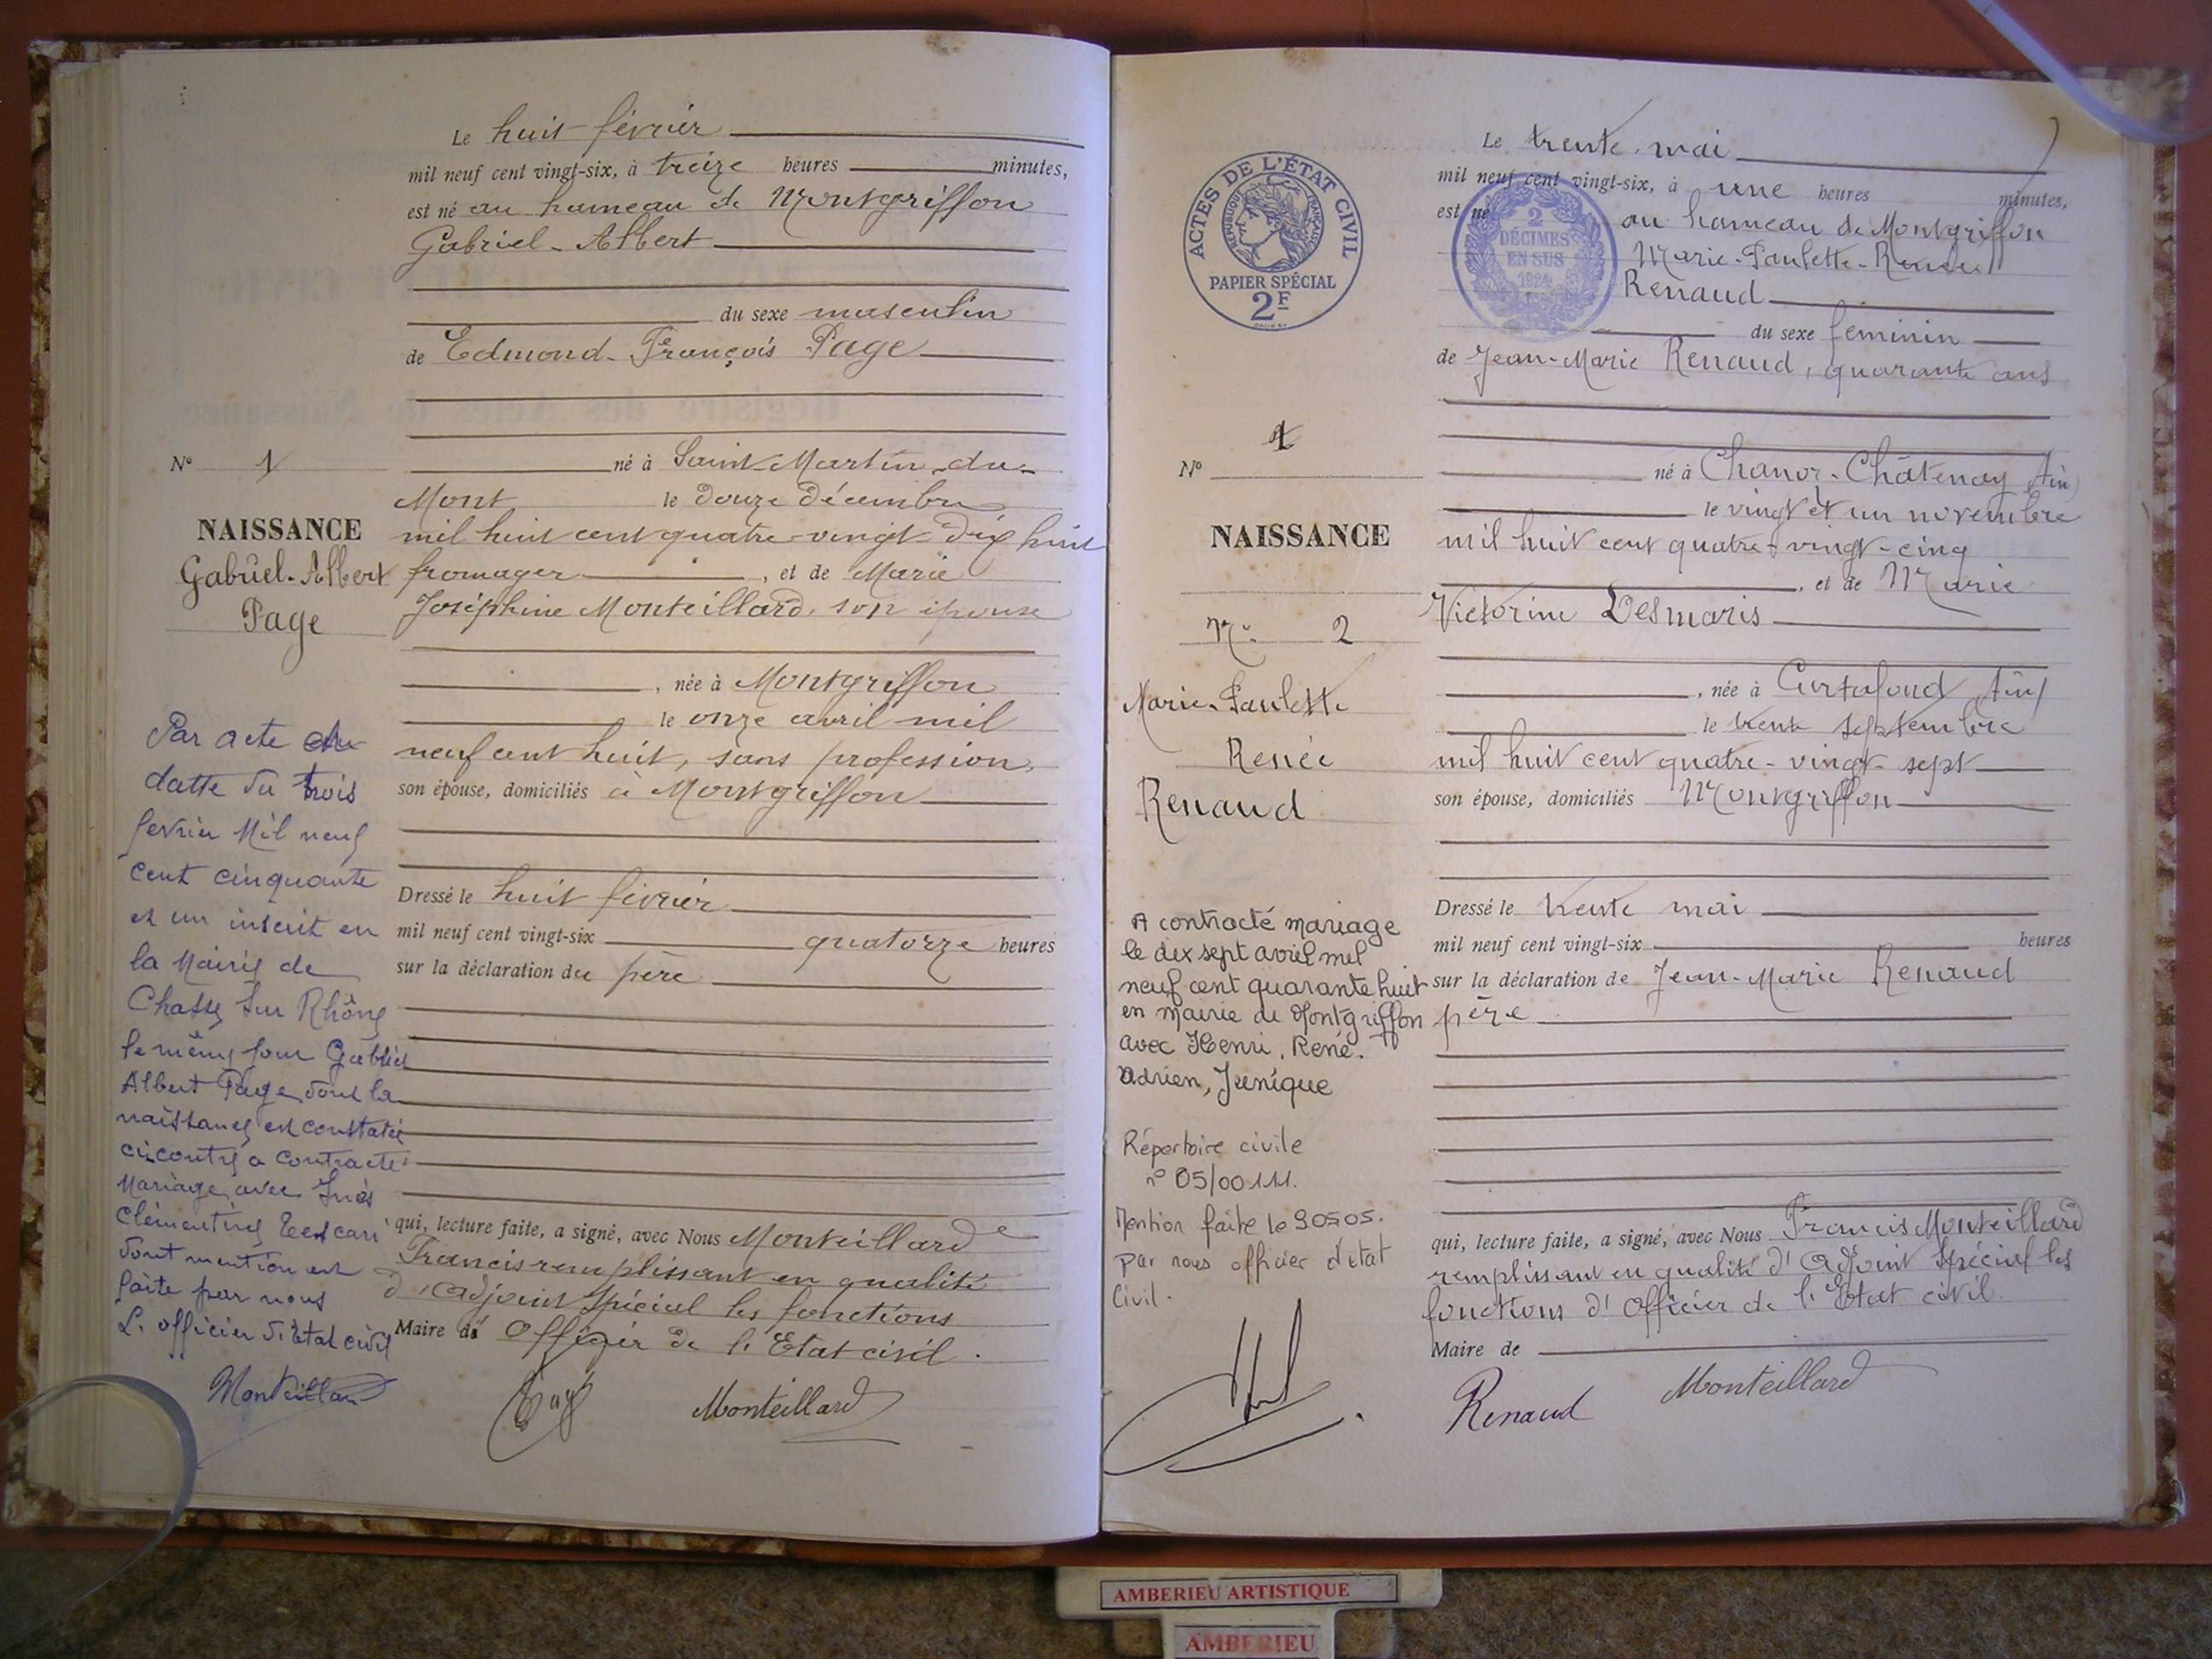 Le huit février
mil neuf cent vingt-six, à treize heures minutes,
est né au hameau de Montgriffon
Gabriel-Albert
du sexe masculin
de Edmond-François Page
né à Saint-Martin-du-
Mont le douze décembre
mil huit cent quatre-vingt-dix huit
fromager, et de Marie
Joséphine Monteillard, son épouse
, née à Montgriffon
le onze avril mil
neuf cent huit, sans profession,
son épouse, domiciliés à Montgriffon
Dressé le huit février
mil neuf cent vingt-six quatorze heures
sur la déclaration du père
qui, lecture faite, a signé, avec Nous Monteillard
Francis remplissant en qualité
d'adjoint spécial les fonctions
Maire de Officier de l'Etat civil.
Monteillard
N° 1
NAISSANCE
Gabriel-Albert
Page
Par acte en
datte du trois
fevrier Mil neuf
cent cinquante
et un inscrit en
la Mairie de
Chasse sur Rhône
le même jour Gabriel
Albert Page dont la
naissance est constatée
cicontre a contracté
Mariage avec Inès
Clémentine
dont mention est
faite par nous
L'officier d'Etat civil
Monteillard
ACTES DE L'ÉTAT CIVIL
RÉPUBLIQUE FRANÇAISE
PAPIER SPÉCIAL
2F
2
DÉCIMES
EN SUS
1924
Le trente mai
mil neuf cent vingt-six, à une heures minutes,
est né au hameau de Montgriffon
Marie-Paulette-Renée
Renaud
du sexe feminin
de Jean-Marie Renaud, quarante ans
né à Chanoz-Châtenay (Ain)
le vingt et un novembre
mil huit cent quatre-vingt-cinq
, et de Marie
Victorine Desmaris
, née à Curtafond (Ain)
le trente septembre
mil huit cent quatre-vingt-sept
son épouse, domiciliés Montgriffon
Dressé le trente mai
mil neuf cent vingt-six heures
sur la déclaration de Jean-Marie Renaud
père
qui, lecture faite, a signé, avec Nous Francis Monteillard
remplissant en qualité d'adjoint spécial les
fonctions d'Officier de l'Etat civil.
Maire de
Renaud Monteillard
N° 1
NAISSANCE
N° 2
Marie-Paulette
Renée
Renaud
A contracté mariage
le dix sept avril mil
neuf cent quarante huit
en mairie de Montgriffon
avec Henri, René.
Adrien, Junique
Répertoire civile
n° 05/00111.
Mention faite le 90505.
par nous officier d'état
Civil.
AMBERIEU ARTISTIQUE
AMBERIEU